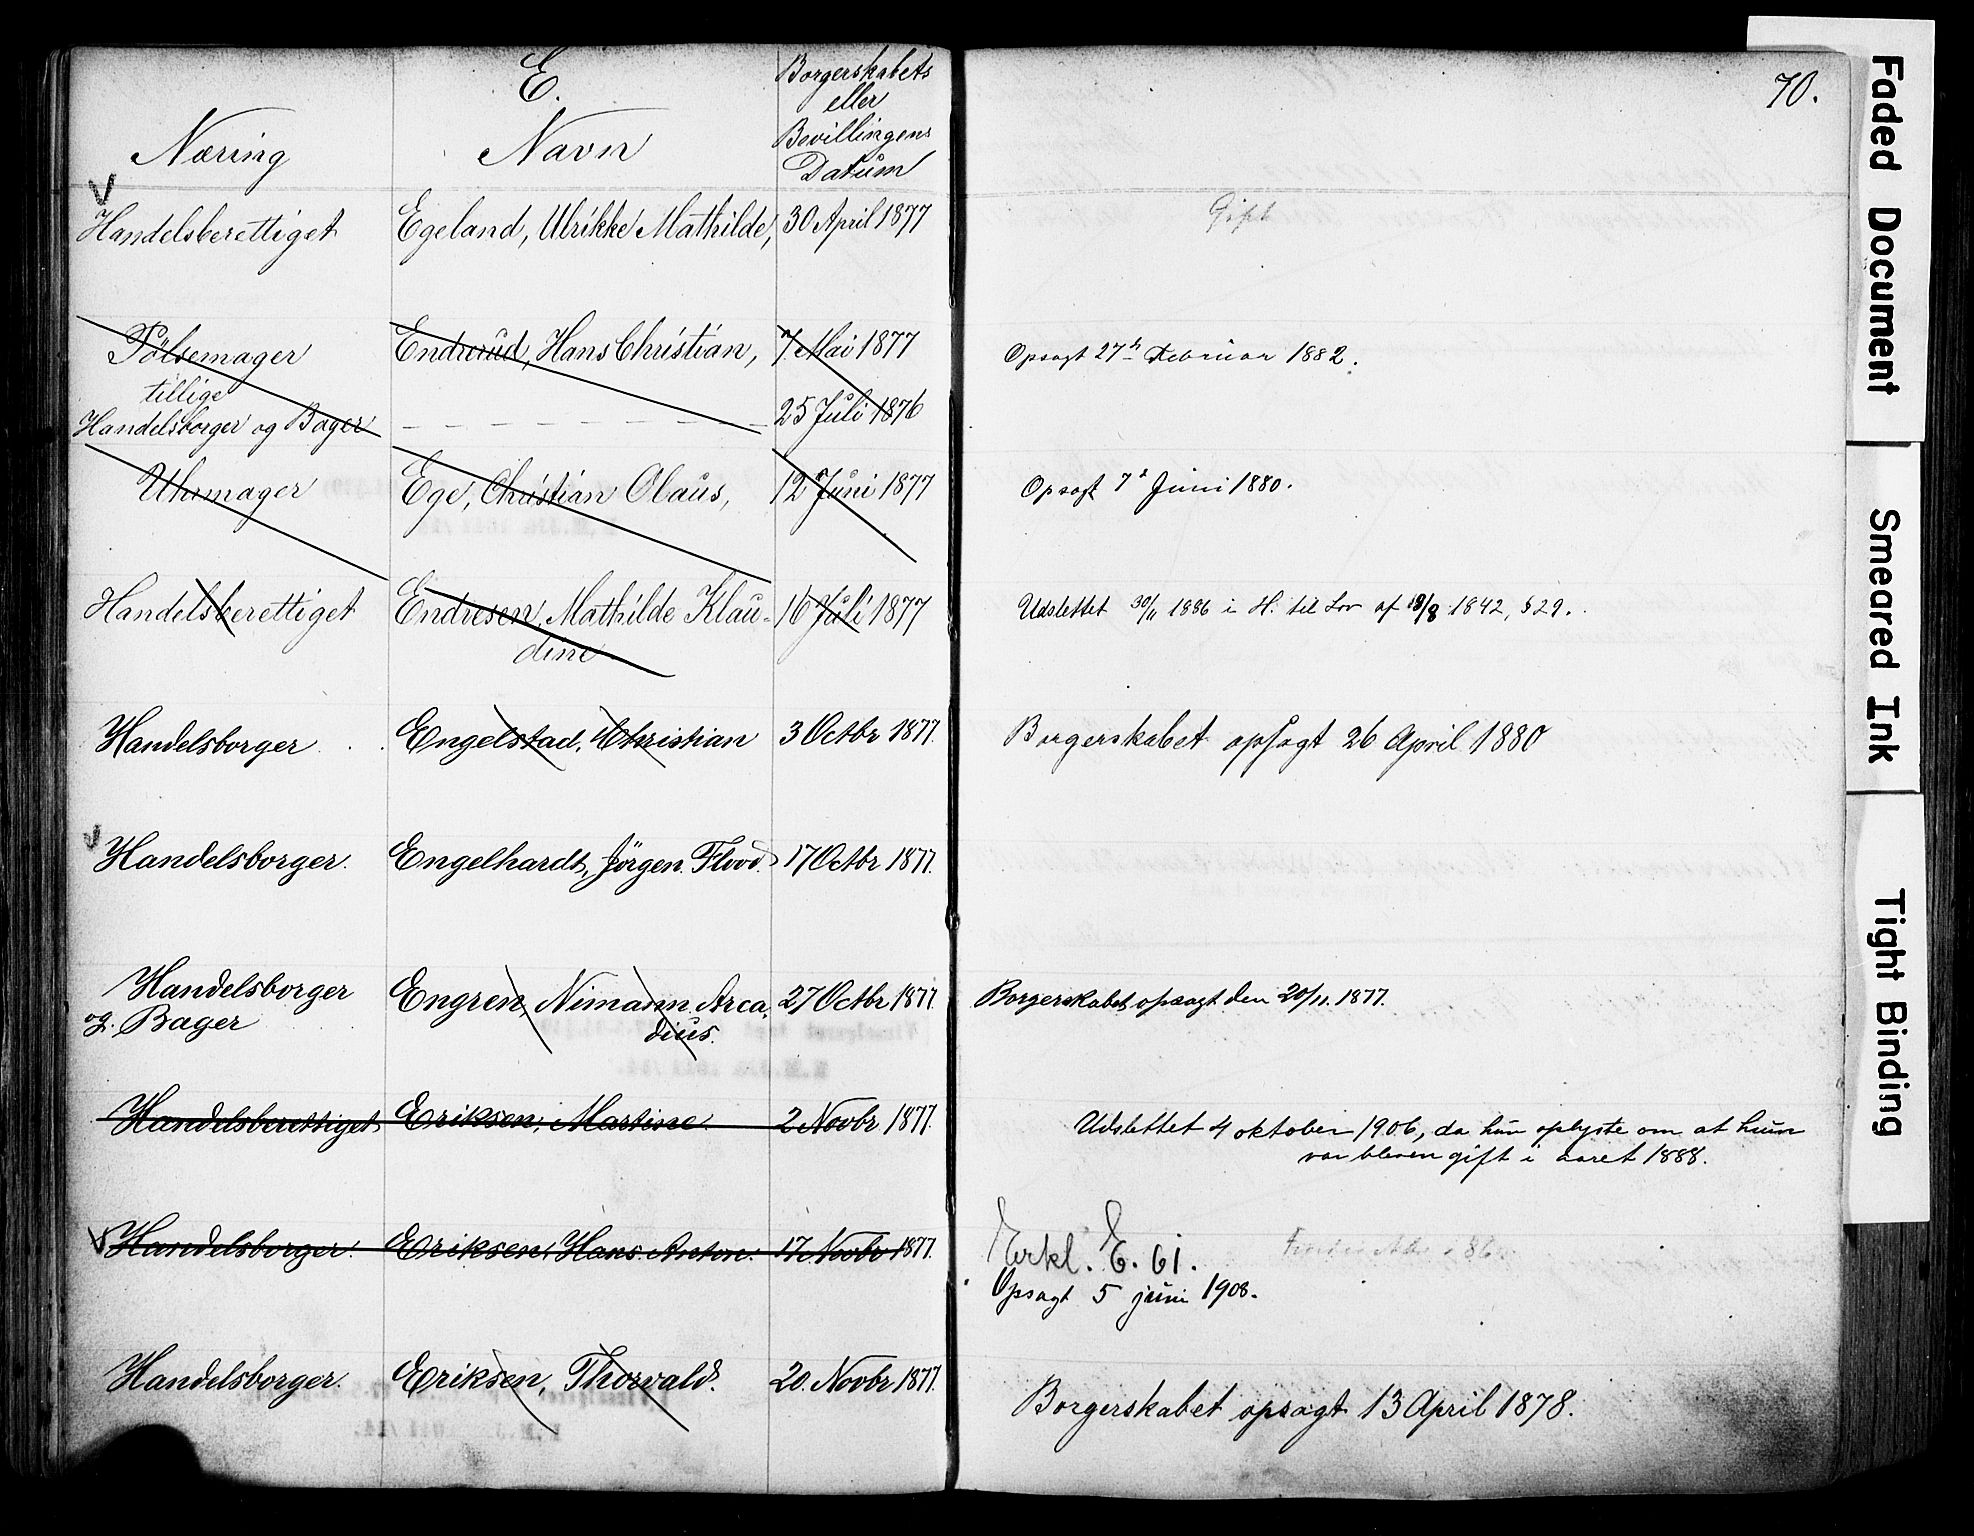 E.
Næring
Navn
Borgerskabets
eller
Bevillingens
Datum
70.
V
Handelsberettiget Egeland, Ulrikke Mathilde, 30 April 1877 Gift
Pölsemager Endrerud, Hans Christian, 7 Mai 1877 Opsagt 27de Februar 1882.
tillige
Handelsborger og Bager – – – – – – – – – 25 Juli 1876
Uhrmager Ege, Christian Olaus, 12 Juni 1877 Opsagt 7de Juni 1880.
Handelsberettiget Endresen, Mathilde Klau- 16 Juli 1877 Udslettet 30/11 1886 i H. til Lov af 8/8 1842, § 29.
dine
Handelsborger Engelstad, Christian 3 Octbr 1877. Borgerskabet opsagt 26 April 1880
V
Handelsborger. Engelhardt, Jörgen Flood. 17 Octbr 1877.
Handelsborger Engren, Nimann Arca- 27 Octbr 1877 Borgerskabet opsagt den 20/11. 1877.
og Bager dius.
Handelsberettiget Eriksen, Martine 2 Novbr 1877. Udslettet 4 oktober 1906, da hun oplyste om at hun
var bleven gift i aaret 1888.
V Handelsborger. Eriksen, Hans Anton. 17 Novbr 1877. Erkl. E. 61.
Opsagt 5 juni 1908.
Handelsborger. Eriksen, Thorvald. 20. Novbr 1877. Borgerskabet opsagt 13 April 1878.
Faded Document
Smeared Ink
Tight Binding